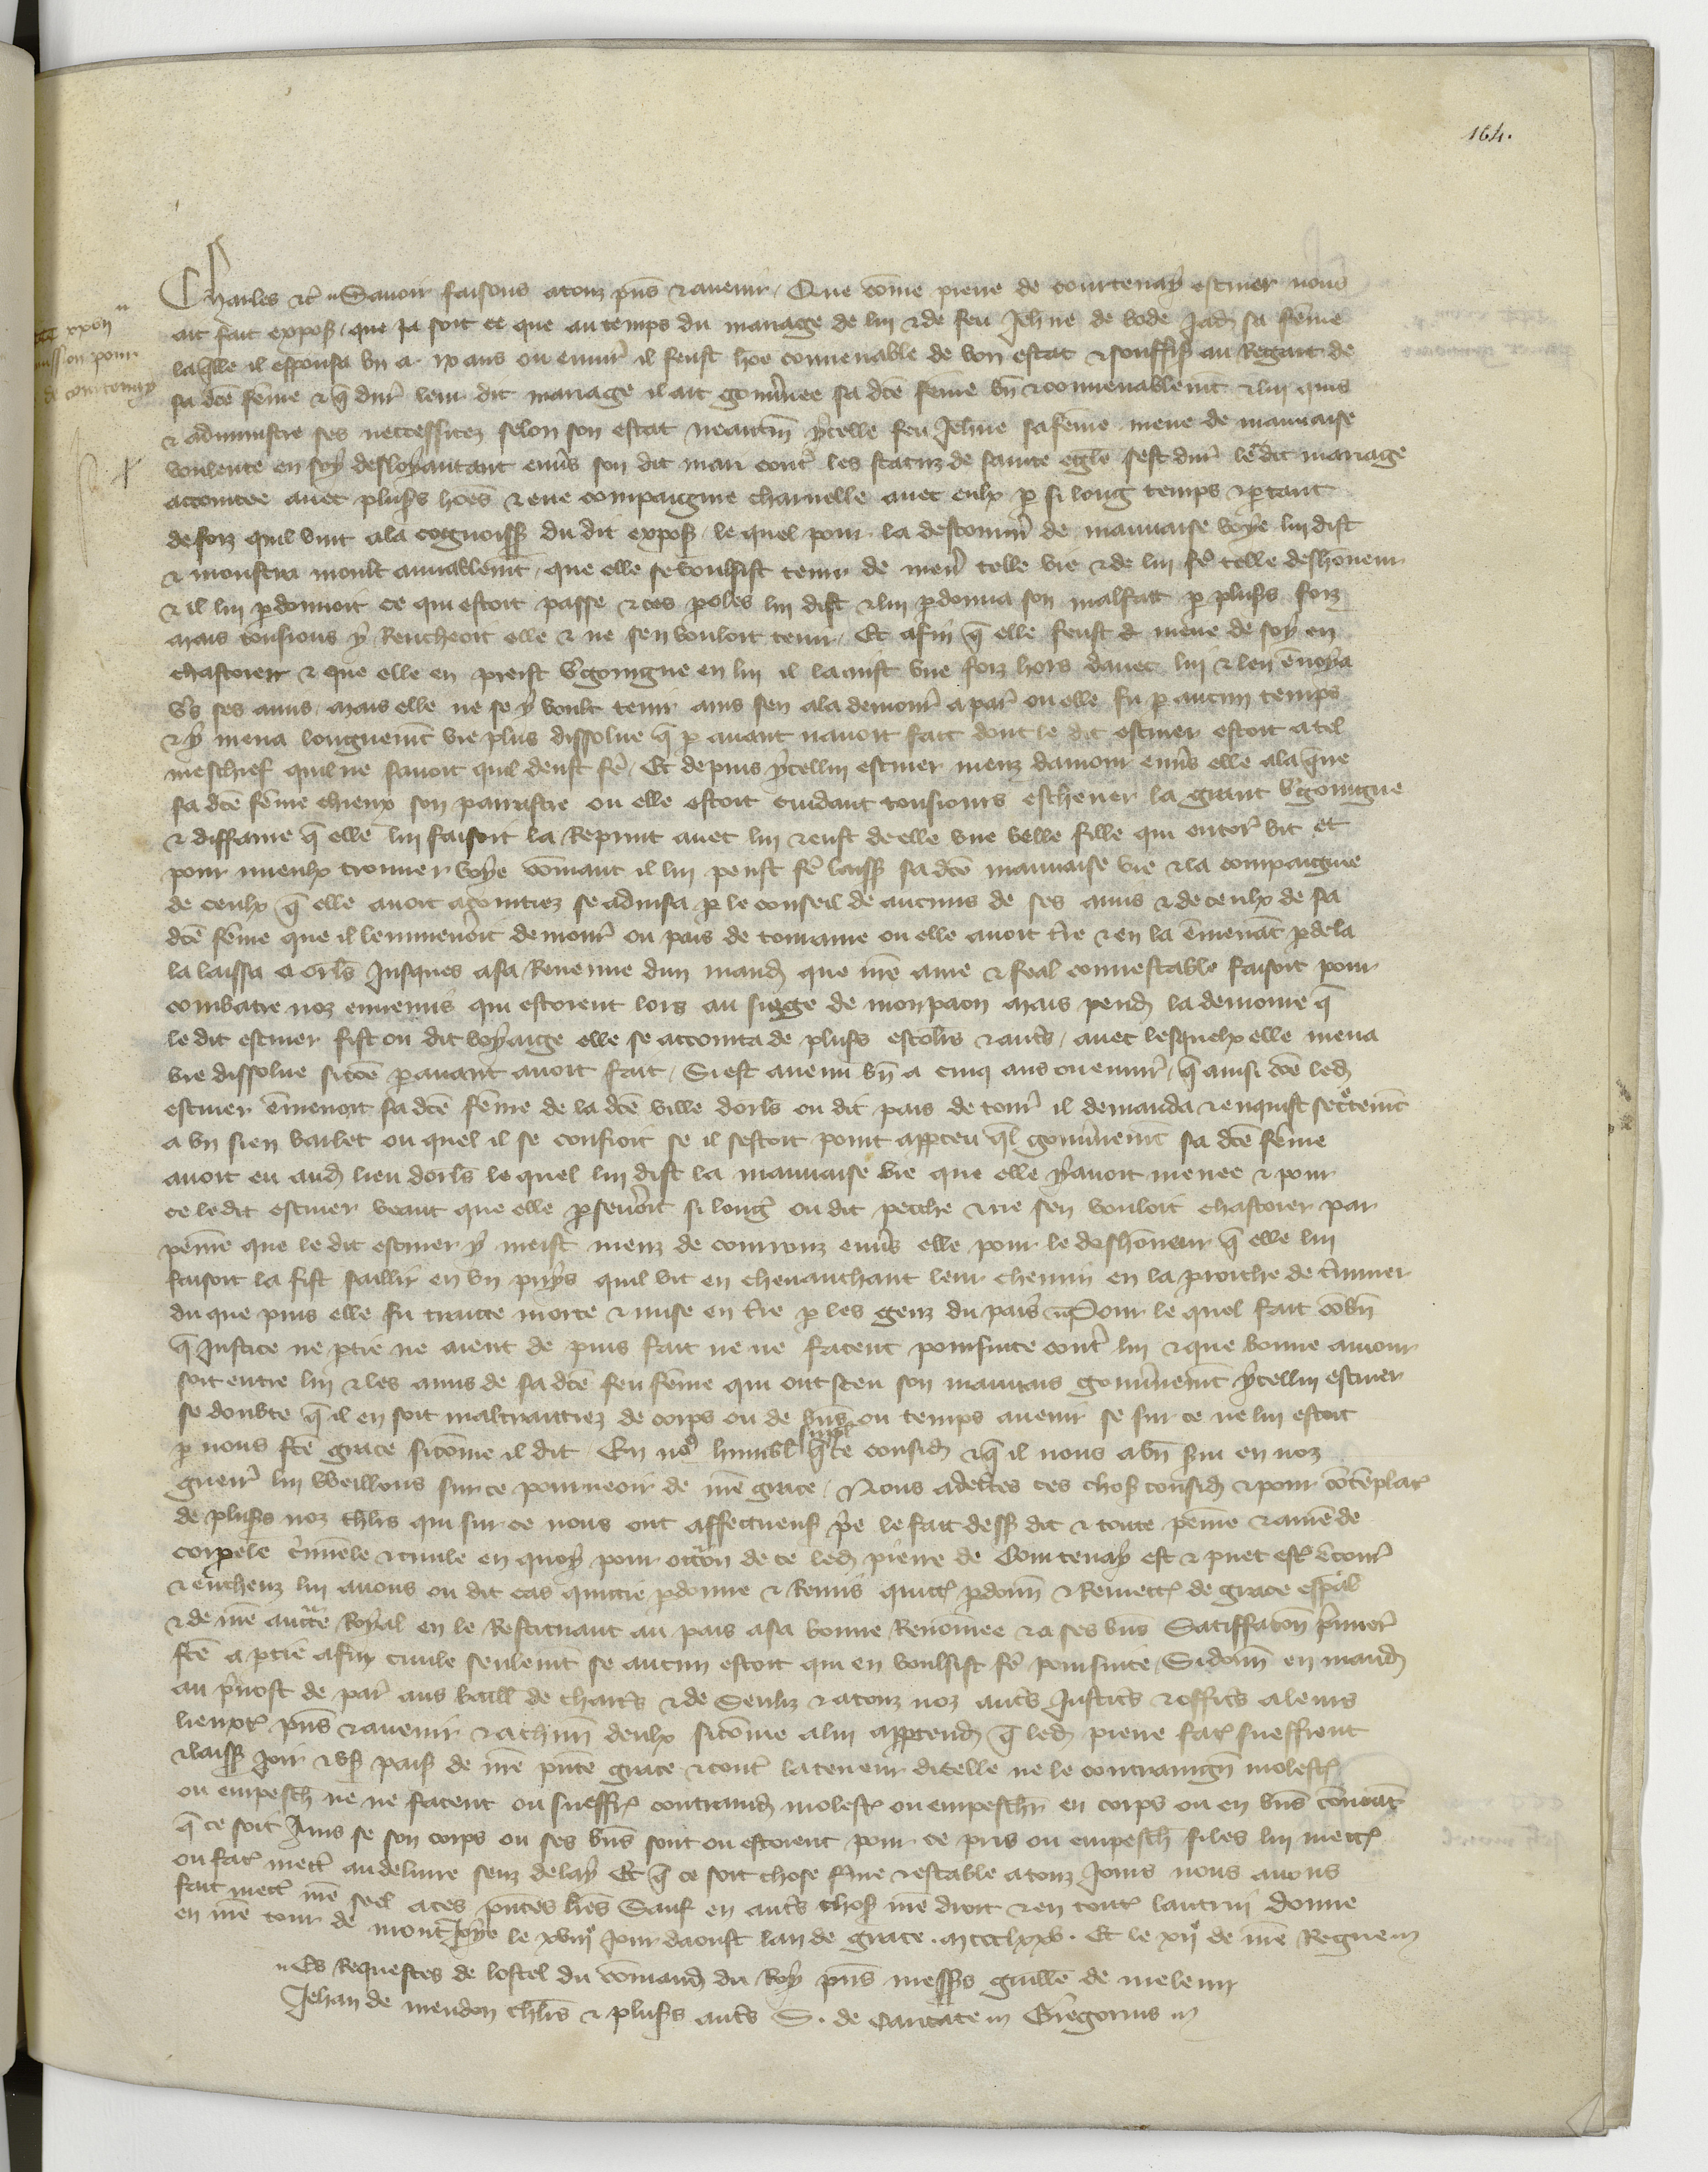 164.
Charles etc̃ Savoir faisons a touz pñs et avenir Que cõme pierre de courtenay escuier noꝰ
ait fait exposer que ja soit ce que au temps du mariage de lui et de feu Jehñe de bode jad sa fẽme
laq̃lle il espousa bñ a ix ans ou envir̃ il feust hõe convenable de bon estat et souffis au Regart de
sa dcẽ fẽme et q̃ dur̃ leur dit mariage il ait gouv̾nee sa dcẽ fẽme bñ et convenablemt̃ et lui quis
et administre ses neccessitez selon son estat neantm̃ ycelle feu Jehñe sa fẽme menee de mauvaise
voulente en soy desloyautant env̾s son dit mari contr̃ les statuz de sainte eglẽ sest dur̃ le dit mariage
accointee avec plus̾s hões et eue compaignie charnelle avec eulx p̲ si long temps et p̲ tant
de foiz quil vint a la cognoiss̃ du dit expos̾ le quel pour la destourñ de mauvaise voye lui dist
et monstra moult amiablemt̃ que elle se voulsist tenir de meñ telle vie et de lui fẽ telle deshonneur
et il lui p̲donnoit ce qui estoit passe et ces p̲oles lui dist et lui p̲donna son malfait p̲ plus̾s foiz
mais tousjours y Rencheoit elle et ne sen vouloit tenir Et afin q̃ elle feust meue de soy en
chastoier et que elle en preist v̾goingne en lui il la mist une foiz hors davec lui et len envoya
v̾s ses amis mais elle ne se y voult tenir ains sen ala demour̃ a par̃ ou elle fu p̲ aucun temps
et y mena longuemt̃ vie plus dissolue q̃ p̲ avant navoit fait dont le dit escuier estoit a tel
meschief quil ne savoit quil deust fẽ Et depuis ycellui escuier meuz damour env̾s elle ala q̃rre
sa dcẽ fẽme chieux son parrastre ou elle estoit cuidant tousjours eschever la grant v̾goingne
et diffame q̃ elle lui faisoit la Reprint avec lui et eust de elle une belle fille qui encor̃ vit et
pour mieulx trouver voye cõmant il lui peust fẽ laiss̾ sa dcẽ mauvaise vie et la compaignie
de ceulx q̃ elle avoit acointiez se advisa p̲ le conseil de aucuns de ses amis et de ceulx de sa
dcẽ fẽme que il lemmenroit demour̃ ou pais de touraine ou elle avoit tr̃e et en la ẽmenãt p̲dela
la laissa a orl̃s jusques a sa Revenue dun mand̾ que nr̃e ame et feal connestable faisoit pour
combatre noz ennemis qui estoient lors au siege de monpaon mais pend̾ la demouree q̃
le dit escuier fist ou dit voyaige elle se accointa de plus̾s escoliers et aut̾s avec lesquelx elle mena
vie dissolue sicõe p̲avant avoit fait Si est avenu bñ a cinq ans ou envir̃ q̃ ainsi cõe led̾
escuier ẽmenoit sa dcẽ fẽme de la dcẽ ville dorl̃s ou dit pais de tour̃ il demanda et enquist secretemt̃
a un sien varlet ou quel il se confioit se il sestoit point apperceu q̃l gouv̾nemt̃ sa dcẽ fẽme
avoit eu aud̾ lieu dorl̃s le quel lui dist la mauvaise vie que elle y avoit menee et pour
ce le dit escuier veant que elle p̲sev̾oit si long̾ ou dit pecche et ne sen vouloit chastoier par
peine que le dit escuier y meist meuz de courrouz env̾s elle pour le deshonneur q̃ elle lui
faisoit la fist saillir en un puys quil vit en chevauchant leur chemin en la parroiche de
du que puis elle fu traitte morte et mise en tr̃e p̲ les genz du pais Pour le quel fait cõbñ
q̃ justice ne p̲tie ne aient de puis fait ne ne facent poursuite contr̃ lui et que bonne amour
soit entre lui et les amis de sa dcẽ feu fẽme qui ont sceu son mauvais gouv̾nemt̃ ycellui escuier
se doubte q̃ il en soit maltraittiez de corps ou de bñs ou temps avenir se sur ce ne lui estoit
p̲ nous fcẽ grace sicõme il dit En nr̃e humblemt̃ q̃ ce consid̾ et q̃ il nous a bñ servi en noz
guerr̃ lui veillons sur ce pourveoir de nr̃e grace Nous adecertes ces chos̾ consid̾ et pour cõtẽplac̃
de plus̾s noz chlr̃s qui sur ce nous ont affectueus̾ p̾e le fait dess̾ dit et toute peine et amẽde
corpele c̾minele et civile en quoy pour occõn de ce led̾ pierre de Courtenay est et puet est̾ ẽcour̃
et encheuz lui avons ou dit cas quittie p̲donne et Remis quitt̾ p̲donñ et Remett̾ de grace esp̲al
et de nr̃e auct̾te Royal en le Restituant au pais a sa bonne Renõmee et a ses bñs Satiffacõn p̾mier̃
fcẽ a p̲tie a fin civile seulemt̃ se aucun estoit qui en voulsist fẽ poursuite Si donñ en mand̾
au p̾vost de par̃ aus baill̾ de chart̾s et de Senliz et a touz noz aut̾s Justic̾s et offic̾s a leurs
lieuxt̾ pñs et avenir et a chũn deulx sicõme a lui app̲tend̾ q̃ led̾ pierre fac̾ sueffrent
et laiss̾ joir et us̾ pais̾ de nr̃e pñte grace et contr̃ la teneur dicelle ne le contraingñ molest̾
ou empesch̾ ne ne facent ou sueffr̾ contraind̾ molest̾ ou empesch̾ en corps ou en bñs
q̃ ce soit Ains se son corps ou ses bñs sont ou estoient pour ce pris ou empesch̾ si les lui mett̾
ou fac̾ mett̾ au delivre senz delay Et q̃ ce soit chose f̾me et estable a touz jours nous avons
fait mett̾ nr̃e seel a ces pñtes lr̃es Sauf en aut̾s chos̾ nr̃e droit et en tout̾ lautrui donne
en nr̃e tour de montjoye le xviije jour daoust lan de grace mccclxxv Et le xije de nr̃e Regne
Es Requestes de lostel du cõmand̾ du Roy pñs mess̾s guillẽ de meleun
Jehan de meudon chlr̃s et plus̾s aut̾s S. de Caritate Gregorius